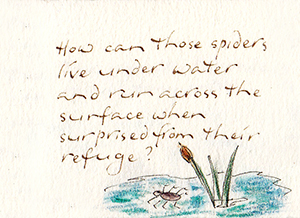 How can those spiders
live under water
and run across the
surface when
surprised from their
refuge?